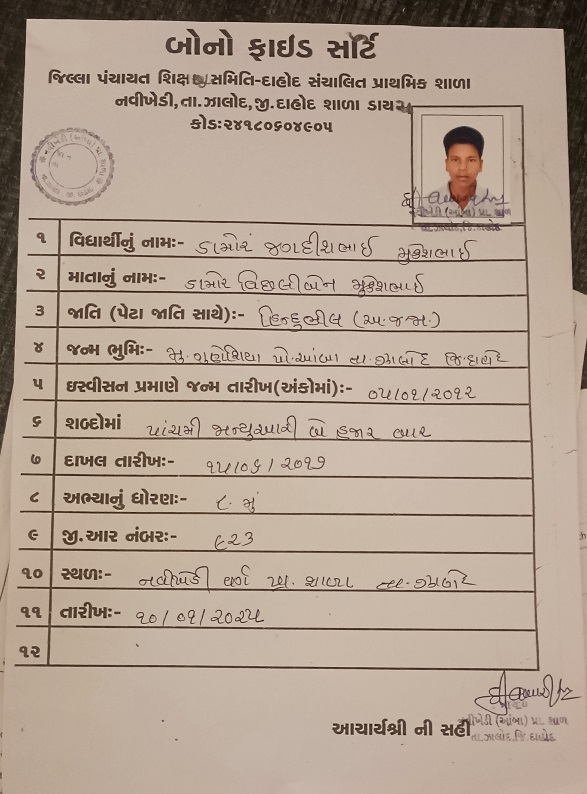 બોનો ફાઇડ સર્ટિ
જિલ્લા પંચાયત શિક્ષણ સમિતિ-દાહોદ સંચાલિત પ્રાથમિક શાળા
નવીખેડી, તા.ઝાલોદ, જી.દાહોદ શાળા ડાયસ
કોડ:૨૪૧૮૦૬૦૪૯૦૫
નવીખેડી (આંબા) પ્રા. શાળ
તા.ઝાલોદ,જિ.દાહોદ
૧ વિદ્યાર્થીનું નામઃ- ડામોર જગદીશભાઈ મુકેશભાઈ
૨ માતાનું નામઃ- ડામોર વિછલીબેન મુકેશભાઈ
૩ જાતિ (પેટા જાતિ સાથે)ઃ- હિન્દુભીલ (અ.જ.જા.)
૪ જન્મ ભુમિઃ- મુ.ગુણેશિયા પો.આંબા તા.ઝાલોદ જિ.દાહોદ
૫ ઇસ્વીસન પ્રમાણે જન્મ તારીખ(અંકોમાં)ઃ- ૦૫/૦૧/૨૦૧૨
૬ શબ્દોમાં પાંચમી જાન્યુઆરી બે હજાર બાર
૭ દાખલ તારીખઃ- ૧૫/૦૬/૨૦૧૭
૮ અભ્યાનું ધોરણઃ- ૮.મું
૯ જી.આર નંબરઃ- ૯૨૩
૧૦ સ્થળઃ- નવીખેડી વર્ગ પ્રા. શાળા તા.ઝાલોદ
૧૧ તારીખઃ- ૧૦/૦૧/૨૦૨૫
૧૨
આચાર્યશ્રી ની સહી
નવીખેડી (આંબા) પ્રા. શાળ
તા.ઝાલોદ,જિ.દાહોદ